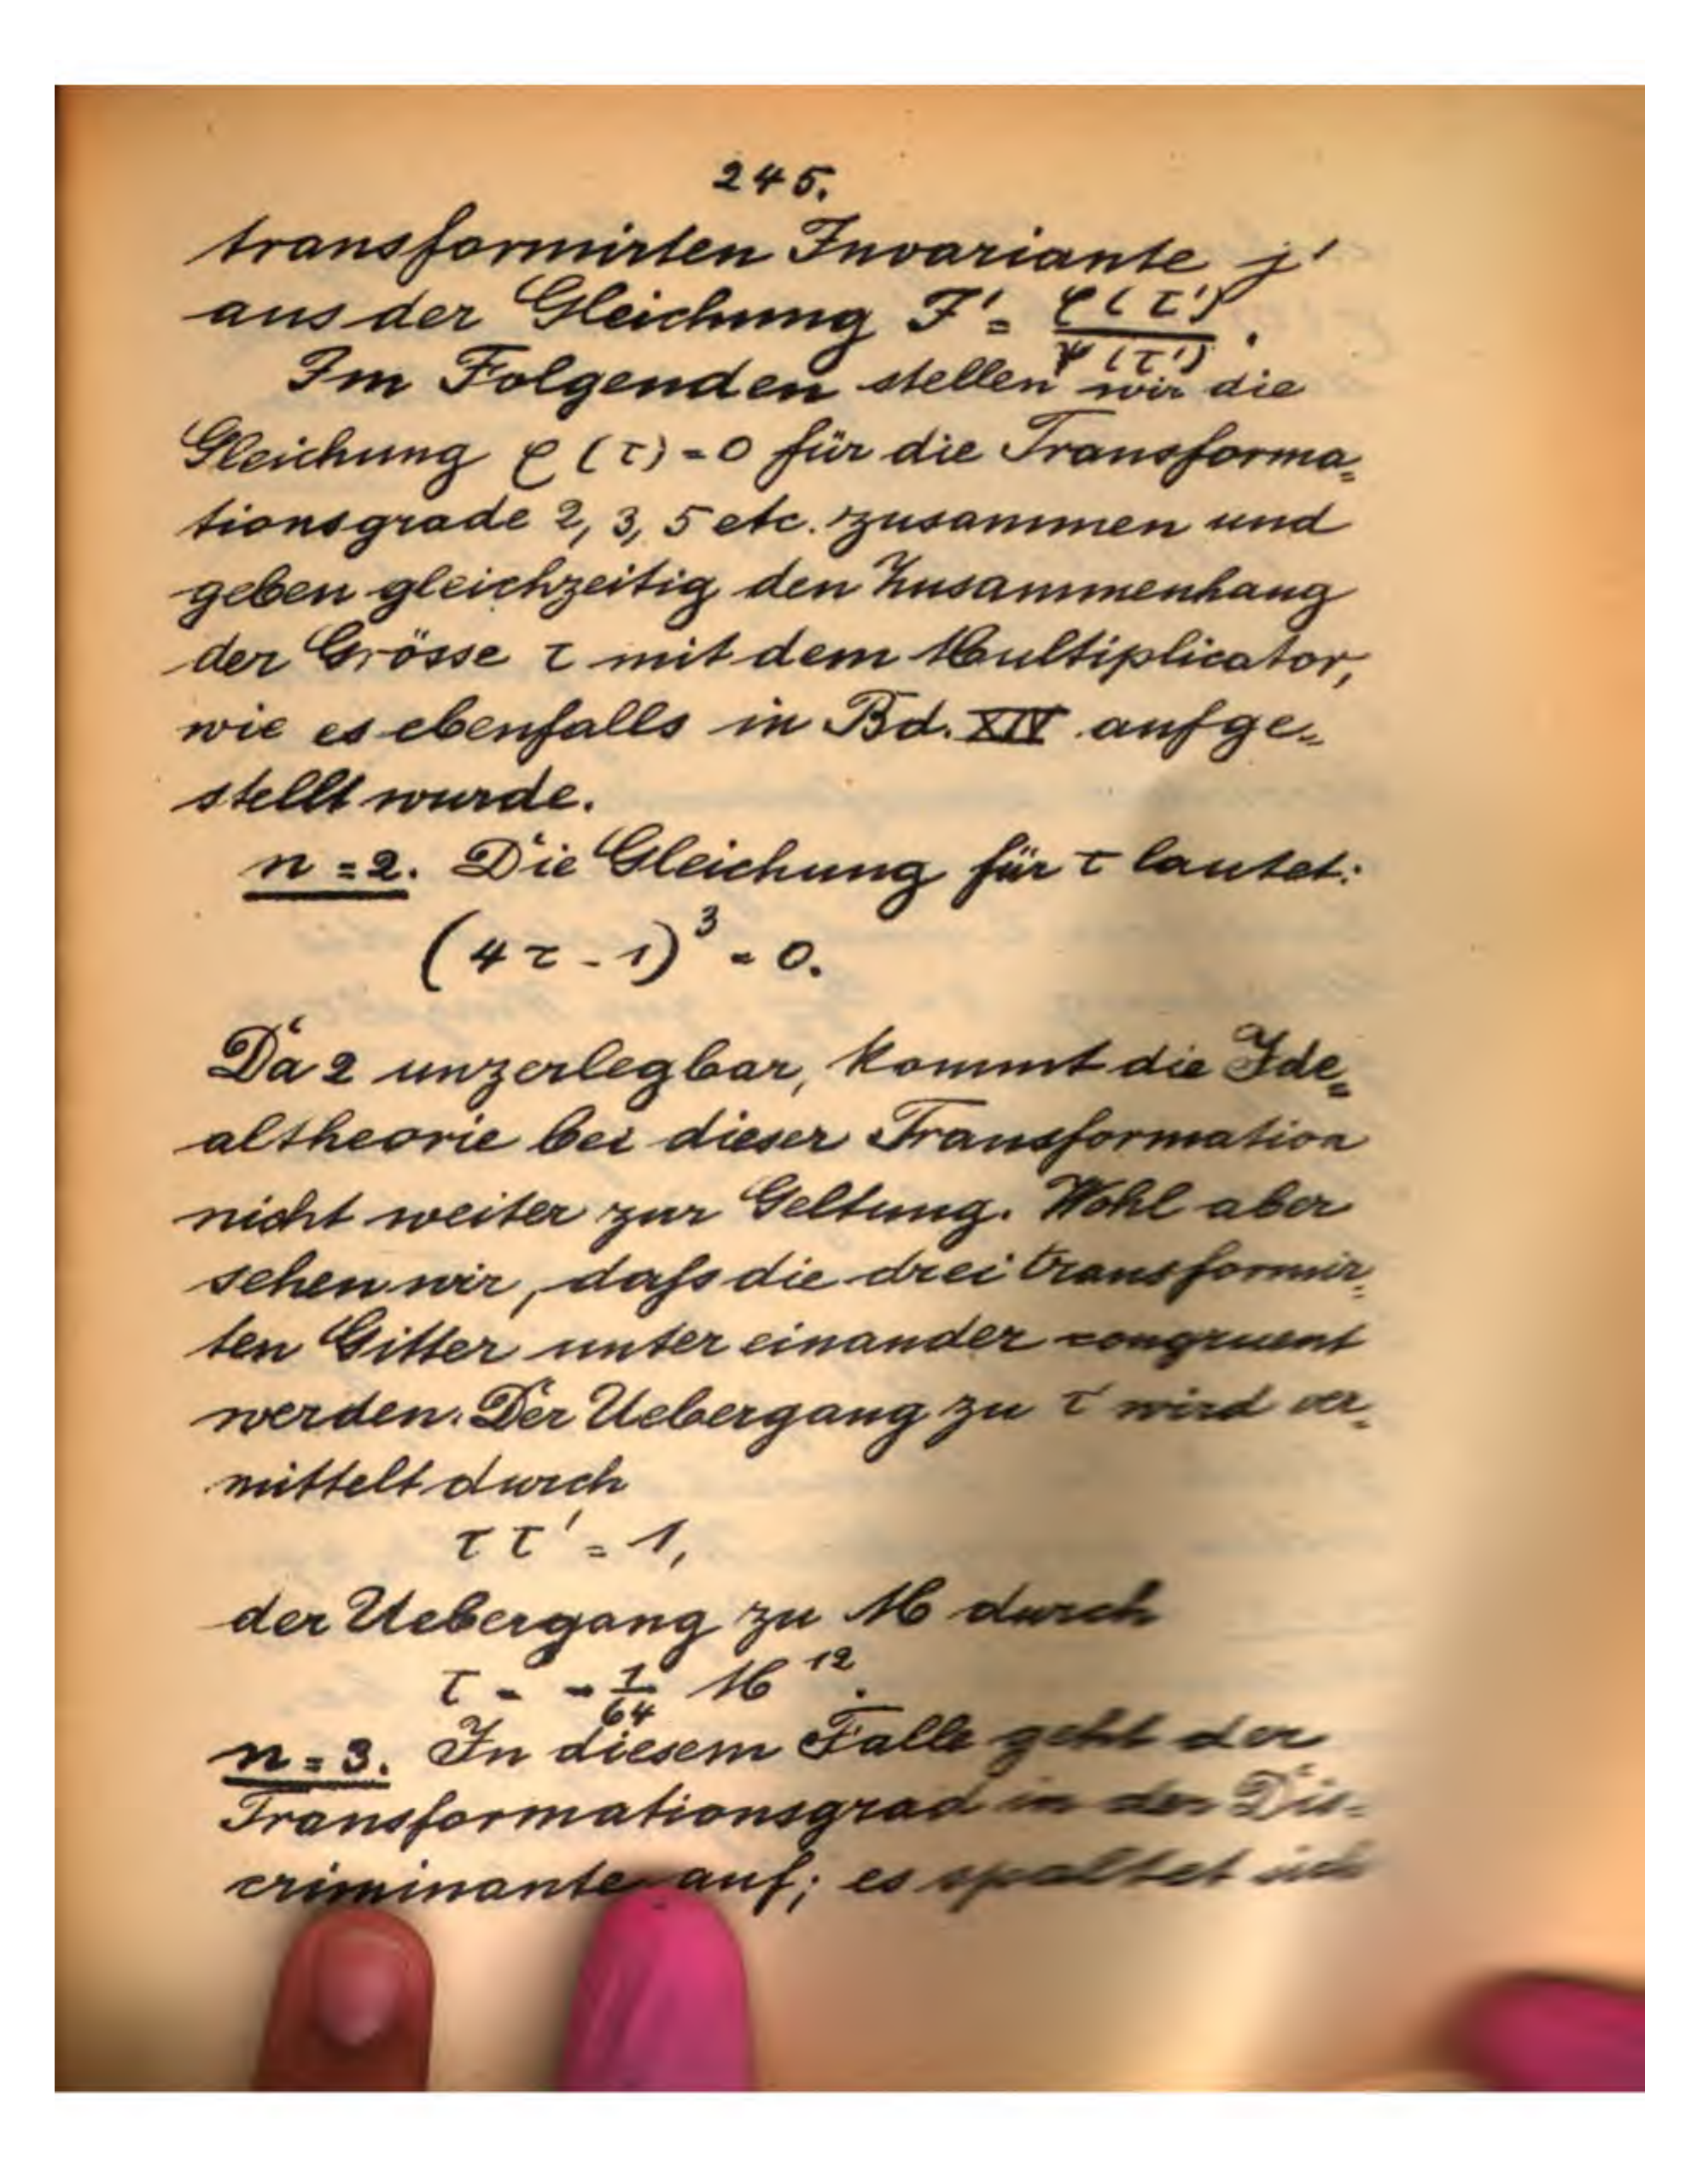 245.
transformirten Invariante j'
aus der Gleichung J' = φ(τ')/ψ(τ').
Im Folgenden stellen wir die
Gleichung φ(τ)=0 für die Transforma=
tionsgrade 2, 3, 5 etc. zusammen und
geben gleichzeitig den Zusammenhang
der Grösse τ mit dem Multiplicator,
wie es ebenfalls in Bd. XIV aufge=
stellt wurde.
n=2. Die Gleichung für τ lautet:
(4τ-1)³=0.
Da 2 unzerlegbar, kommt die Ide=
altheorie bei dieser Transformation
nicht weiter zur Geltung. Wohl aber
sehen wir, daſs die drei transformir=
ten Gitter unter einander congruent
werden. Der Uebergang zu τ' wird ver=
mittelt durch
ττ'=1,
der Uebergang zu M durch
τ = -1/64 M¹².
n=3. In diesem Falle geht der
Transformationsgrad in der Dis=
criminante auf; es spaltet sich